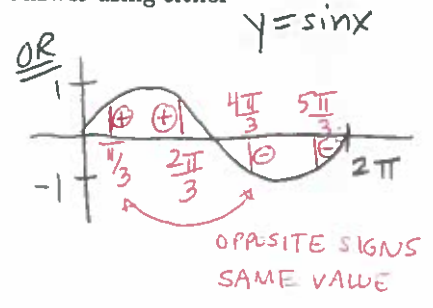 y=sinx
OR
1
⊕ ⊕ 4π/3 5π/3
π/3 2π/3 ⊖ ⊖ 2π
-1
OPPOSITE SIGNS
SAME VALUE